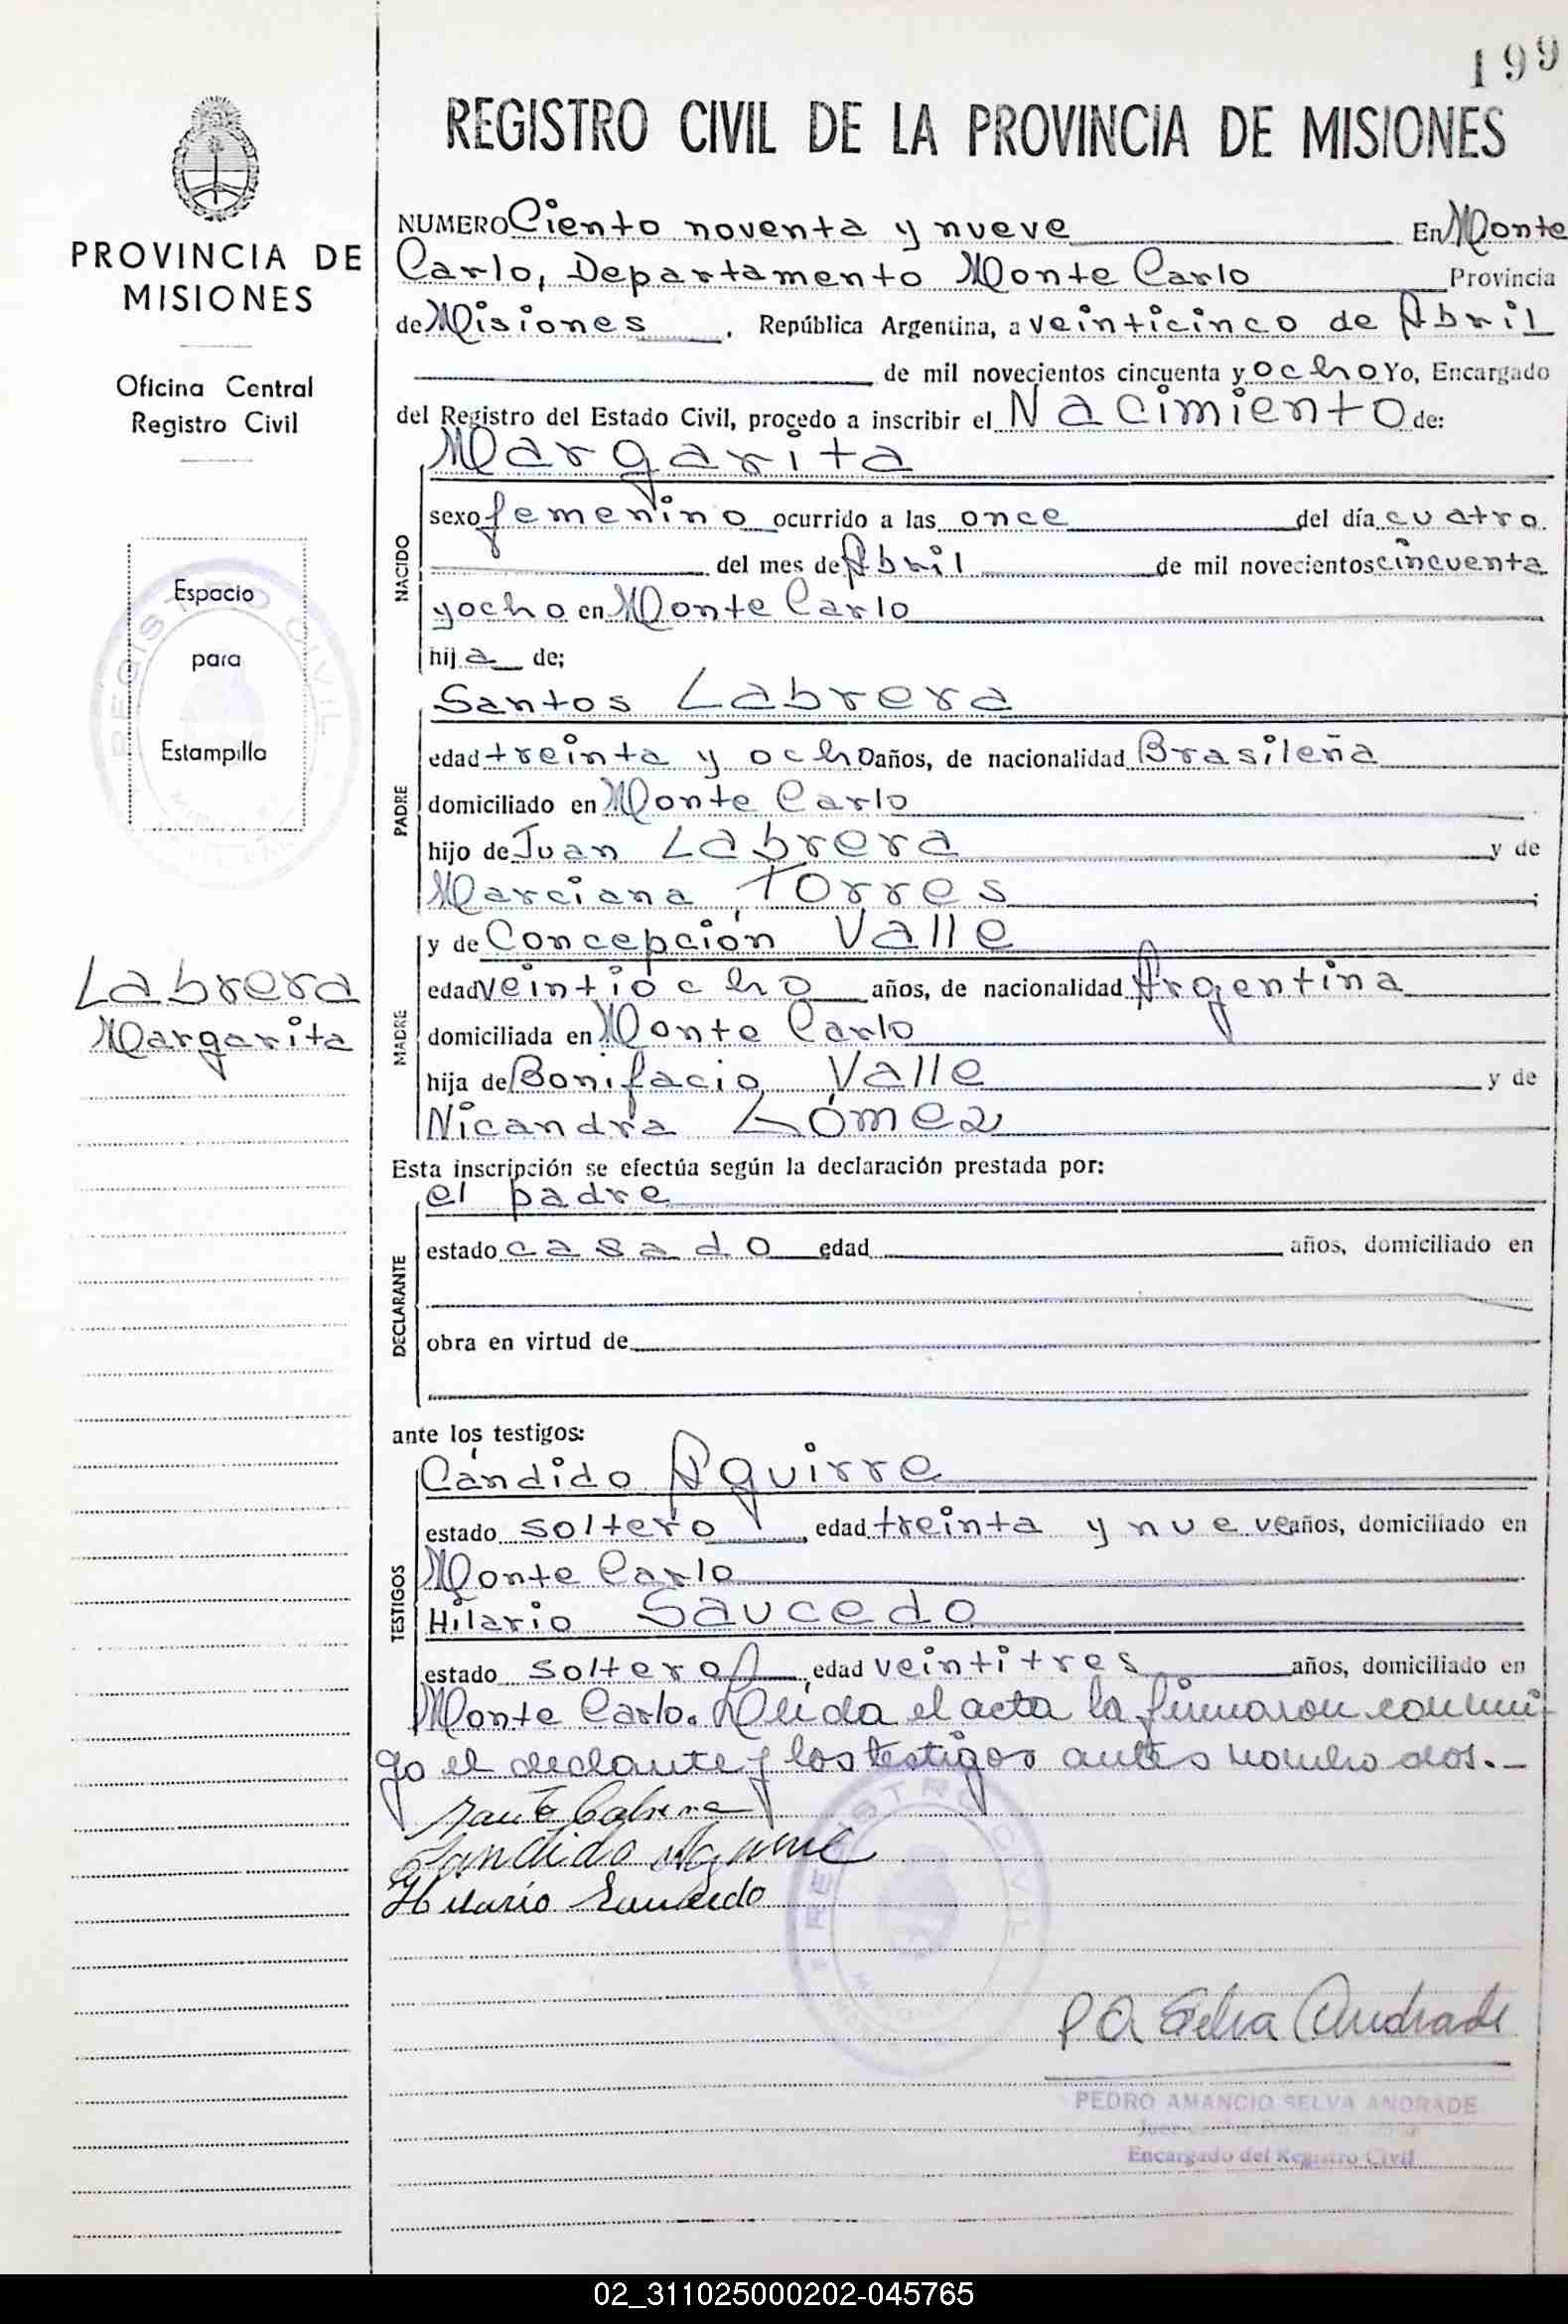 199
REGISTRO CIVIL DE LA PROVINCIA DE MISIONES
PROVINCIA DE
MISIONES
Oficina Central
Registro Civil
Espacio
para
Estampilla
Labrera
Margarita
NUMERO Ciento noventa y nueve En Monte
Carlo, Departamento Monte Carlo Provincia
de Misiones, República Argentina, a veinticinco de Abril
de mil novecientos cincuenta y ocho Yo, Encargado
del Registro del Estado Civil, procedo a inscribir el Nacimiento de:
NACIDO
Margarita
sexo femenino ocurrido a las once del día cuatro
del mes de Abril de mil novecientos cincuenta
y ocho en Monte Carlo
hija de;
PADRE
Santos Labrera
edad treinta y ocho años, de nacionalidad Brasileña
domiciliado en Monte Carlo
hijo de Juan Labrera y de
Marciana Torres;
MADRE
y de Concepción Valle
edad veintiocho años, de nacionalidad Argentina
domiciliada en Monte Carlo
hija de Bonifacio Valle y de
Nicandra Gómez
Esta inscripción se efectúa según la declaración prestada por:
DECLARANTE
el padre
estado casado edad años, domiciliado en
obra en virtud de
ante los testigos:
TESTIGOS
Cándido Aguirre
estado soltero, edad treinta y nueve años, domiciliado en
Monte Carlo
Hilario Saucedo
estado soltero, edad veintitres años, domiciliado en
Monte Carlo. Leída el acta la firmaron conmi-
go el declante y los testigos antes nombrados.-
Santo Cabrera
Candido Aguirre
Hilario Saucedo
REGISTRO CIVIL
P A Selva Andrade
PEDRO AMANCIO SELVA ANDRADE
Encargado del Registro Civil
02_311025000202-045765